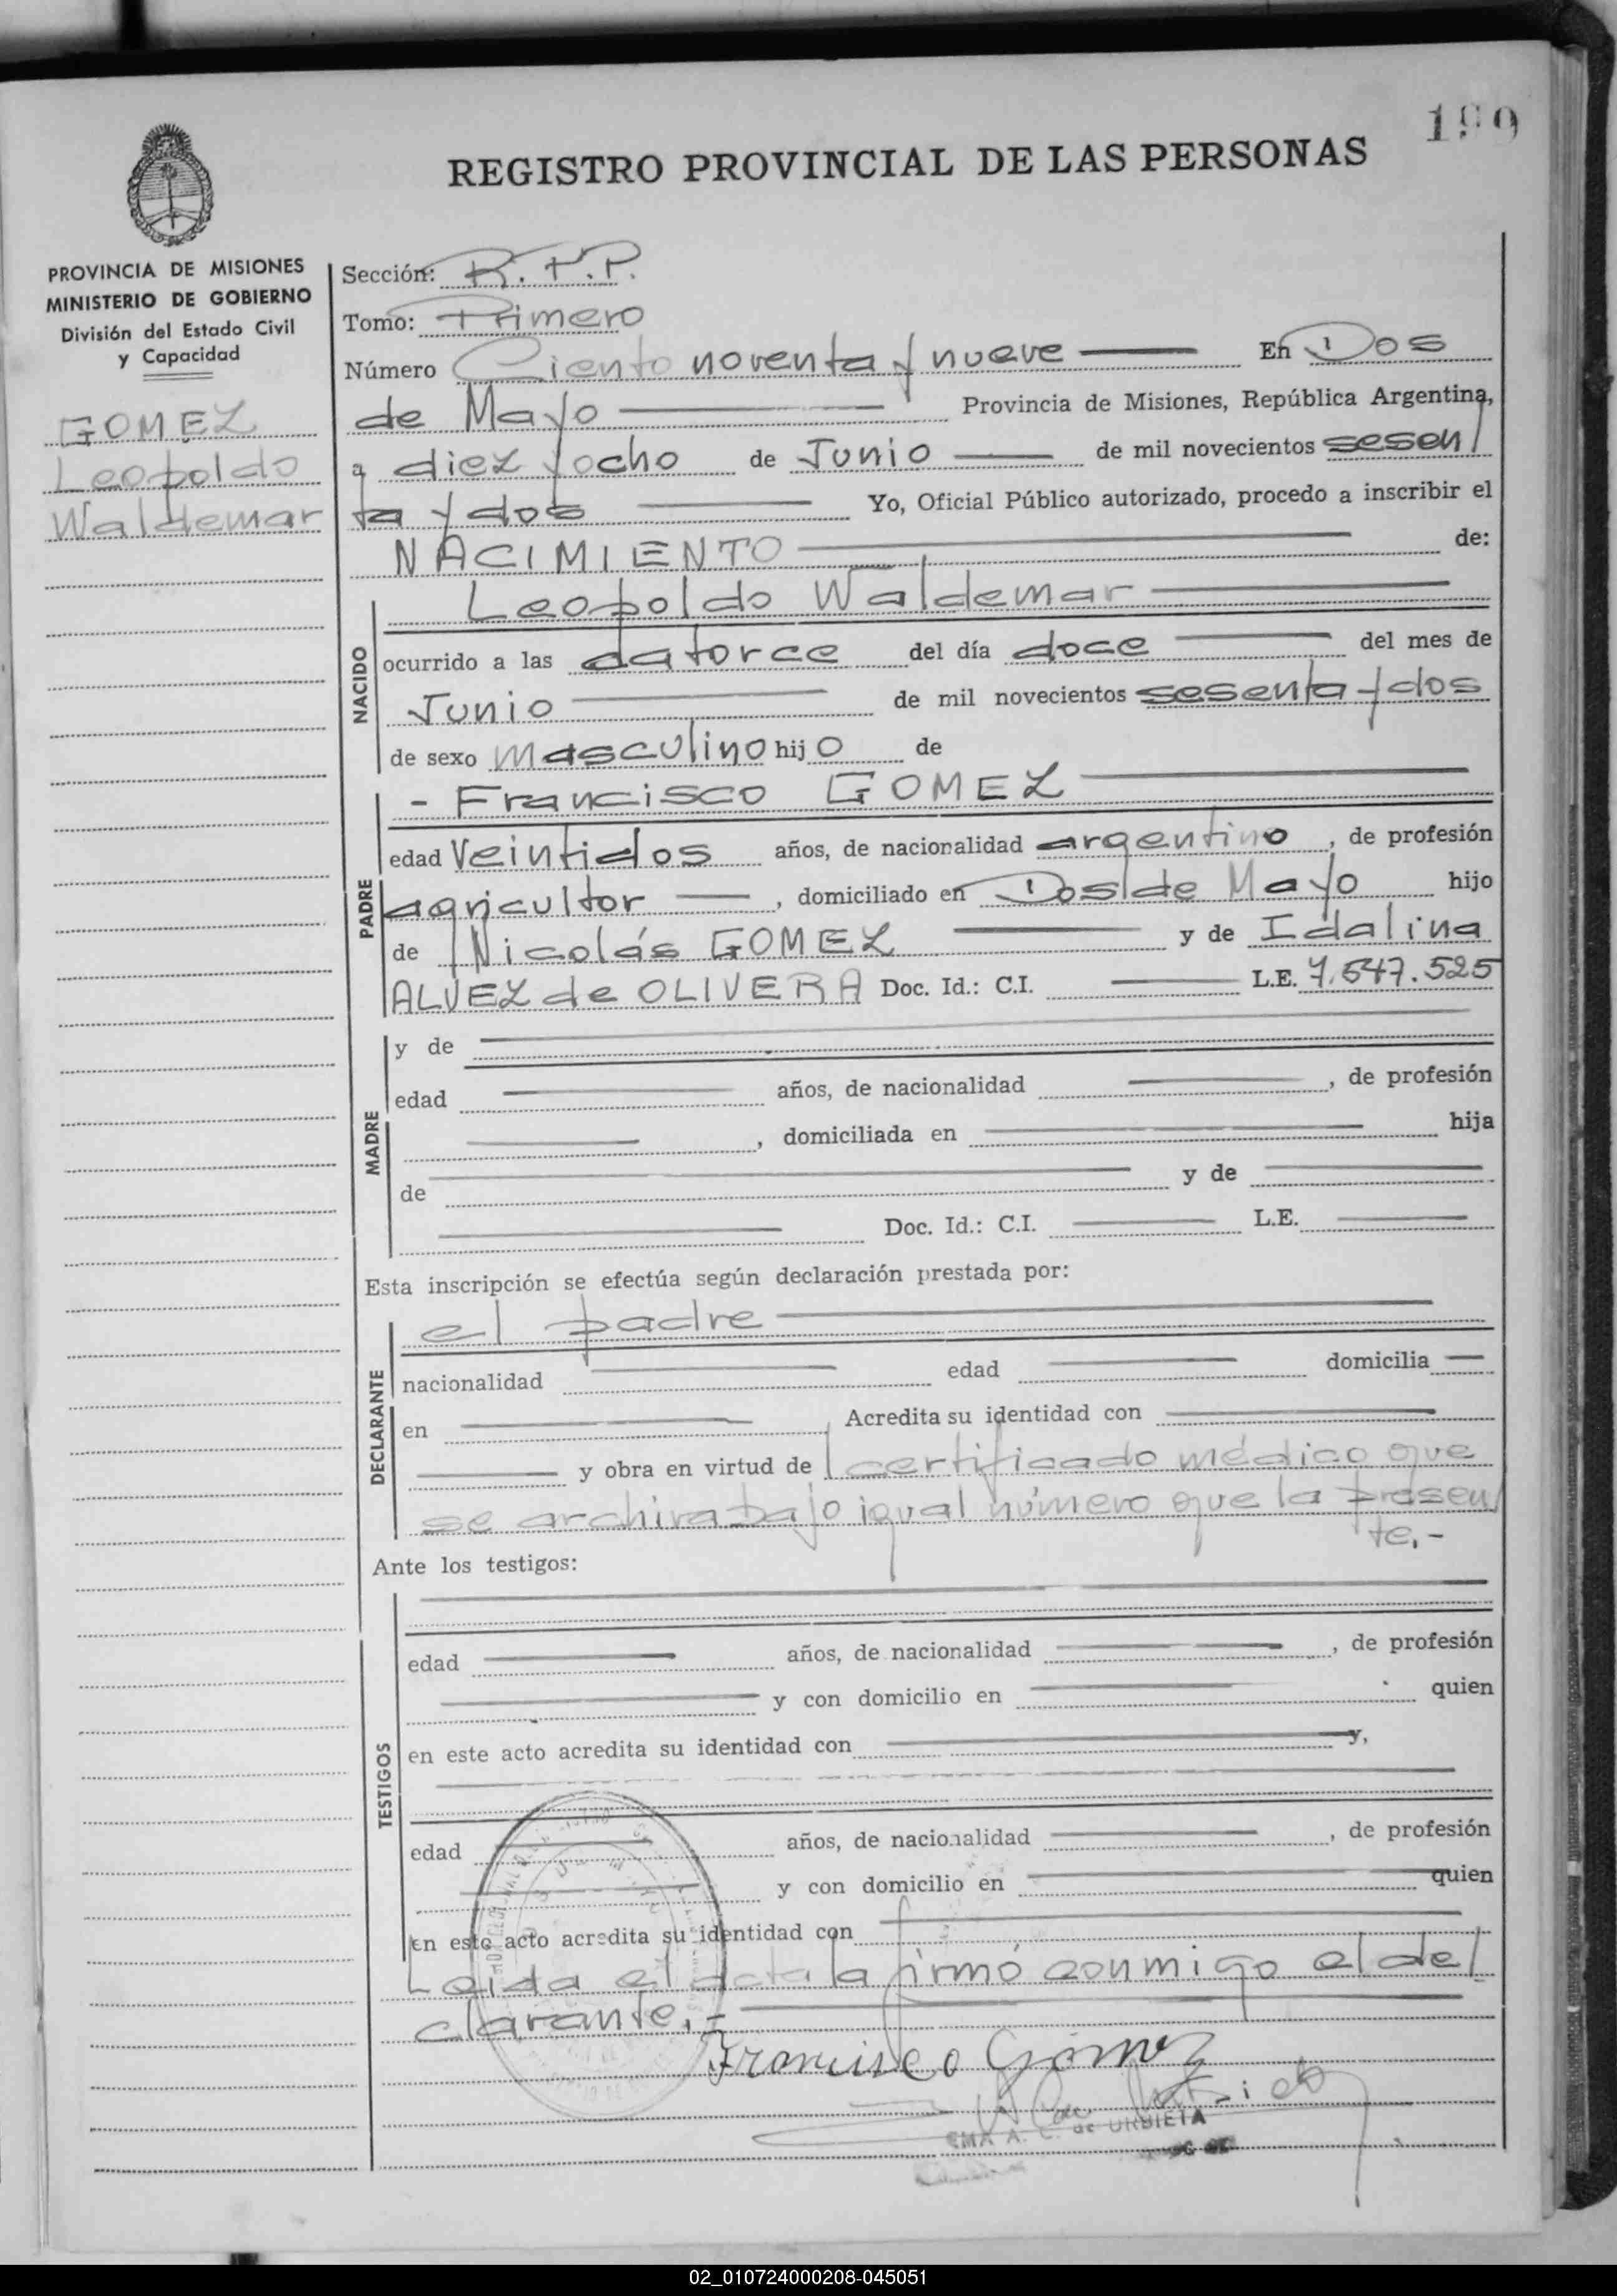 199
REGISTRO PROVINCIAL DE LAS PERSONAS
PROVINCIA DE MISIONES
MINISTERIO DE GOBIERNO
División del Estado Civil
y Capacidad
GOMEZ
Leopoldo
Waldemar
Sección: R.P.P.
Tomo: Primero
Número Ciento noventa y nueve En Dos
de Mayo Provincia de Misiones, República Argentina,
a diez y ocho de Junio de mil novecientos sesen
ta y dos Yo, Oficial Público autorizado, procedo a inscribir el
NACIMIENTO de:
NACIDO
Leopoldo Waldemar
ocurrido a las catorce del día doce del mes de
Junio de mil novecientos sesenta y dos
de sexo masculino hijo de
PADRE
- Francisco GOMEZ
edad Veintidos años, de nacionalidad argentino, de profesión
agricultor, domiciliado en Dos de Mayo hijo
de Nicolás GOMEZ y de Idalina
ALVEZ de OLIVERA Doc. Id.: C.I. L.E. 7.547.525
MADRE
y de
edad años, de nacionalidad , de profesión
, domiciliada en hija
de y de
Doc. Id.: C.I. L.E.
Esta inscripción se efectúa según declaración prestada por:
DECLARANTE
el padre
nacionalidad edad domicilia
en Acredita su identidad con
y obra en virtud de certificado médico que
se archiva bajo igual número que la presen
te.-
Ante los testigos:
TESTIGOS
edad años, de nacionalidad , de profesión
y con domicilio en quien
en este acto acredita su identidad con y,
edad años, de nacionalidad , de profesión
y con domicilio en quien
en este acto acredita su identidad con
Leida el acta la firmó conmigo el de
clarante.-
Francisco Gómez
EMA A. C. de URBIETA
02_010724000208-045051